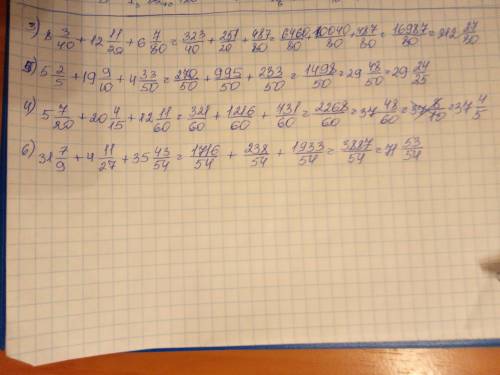 3) 8 3/40 + 12 11/20 + 6 7/80 = 323/40 + 251/20 + 487/80 = 6460/80 + 10040/80 + 487/80 = 16987/80 = 212 27/80
5) 5 2/5 + 19 9/10 + 4 33/50 = 270/50 + 995/50 + 233/50 = 1498/50 = 29 48/50 = 29 24/25
4) 5 7/20 + 20 4/15 + 12 11/60 = 321/60 + 1216/60 + 731/60 = 2268/60 = 37 48/60 = = 37 4/5
6) 31 7/9 + 4 11/27 + 35 43/54 = 1716/54 + 238/54 + 1933/54 = 3887/54 = 71 53/54